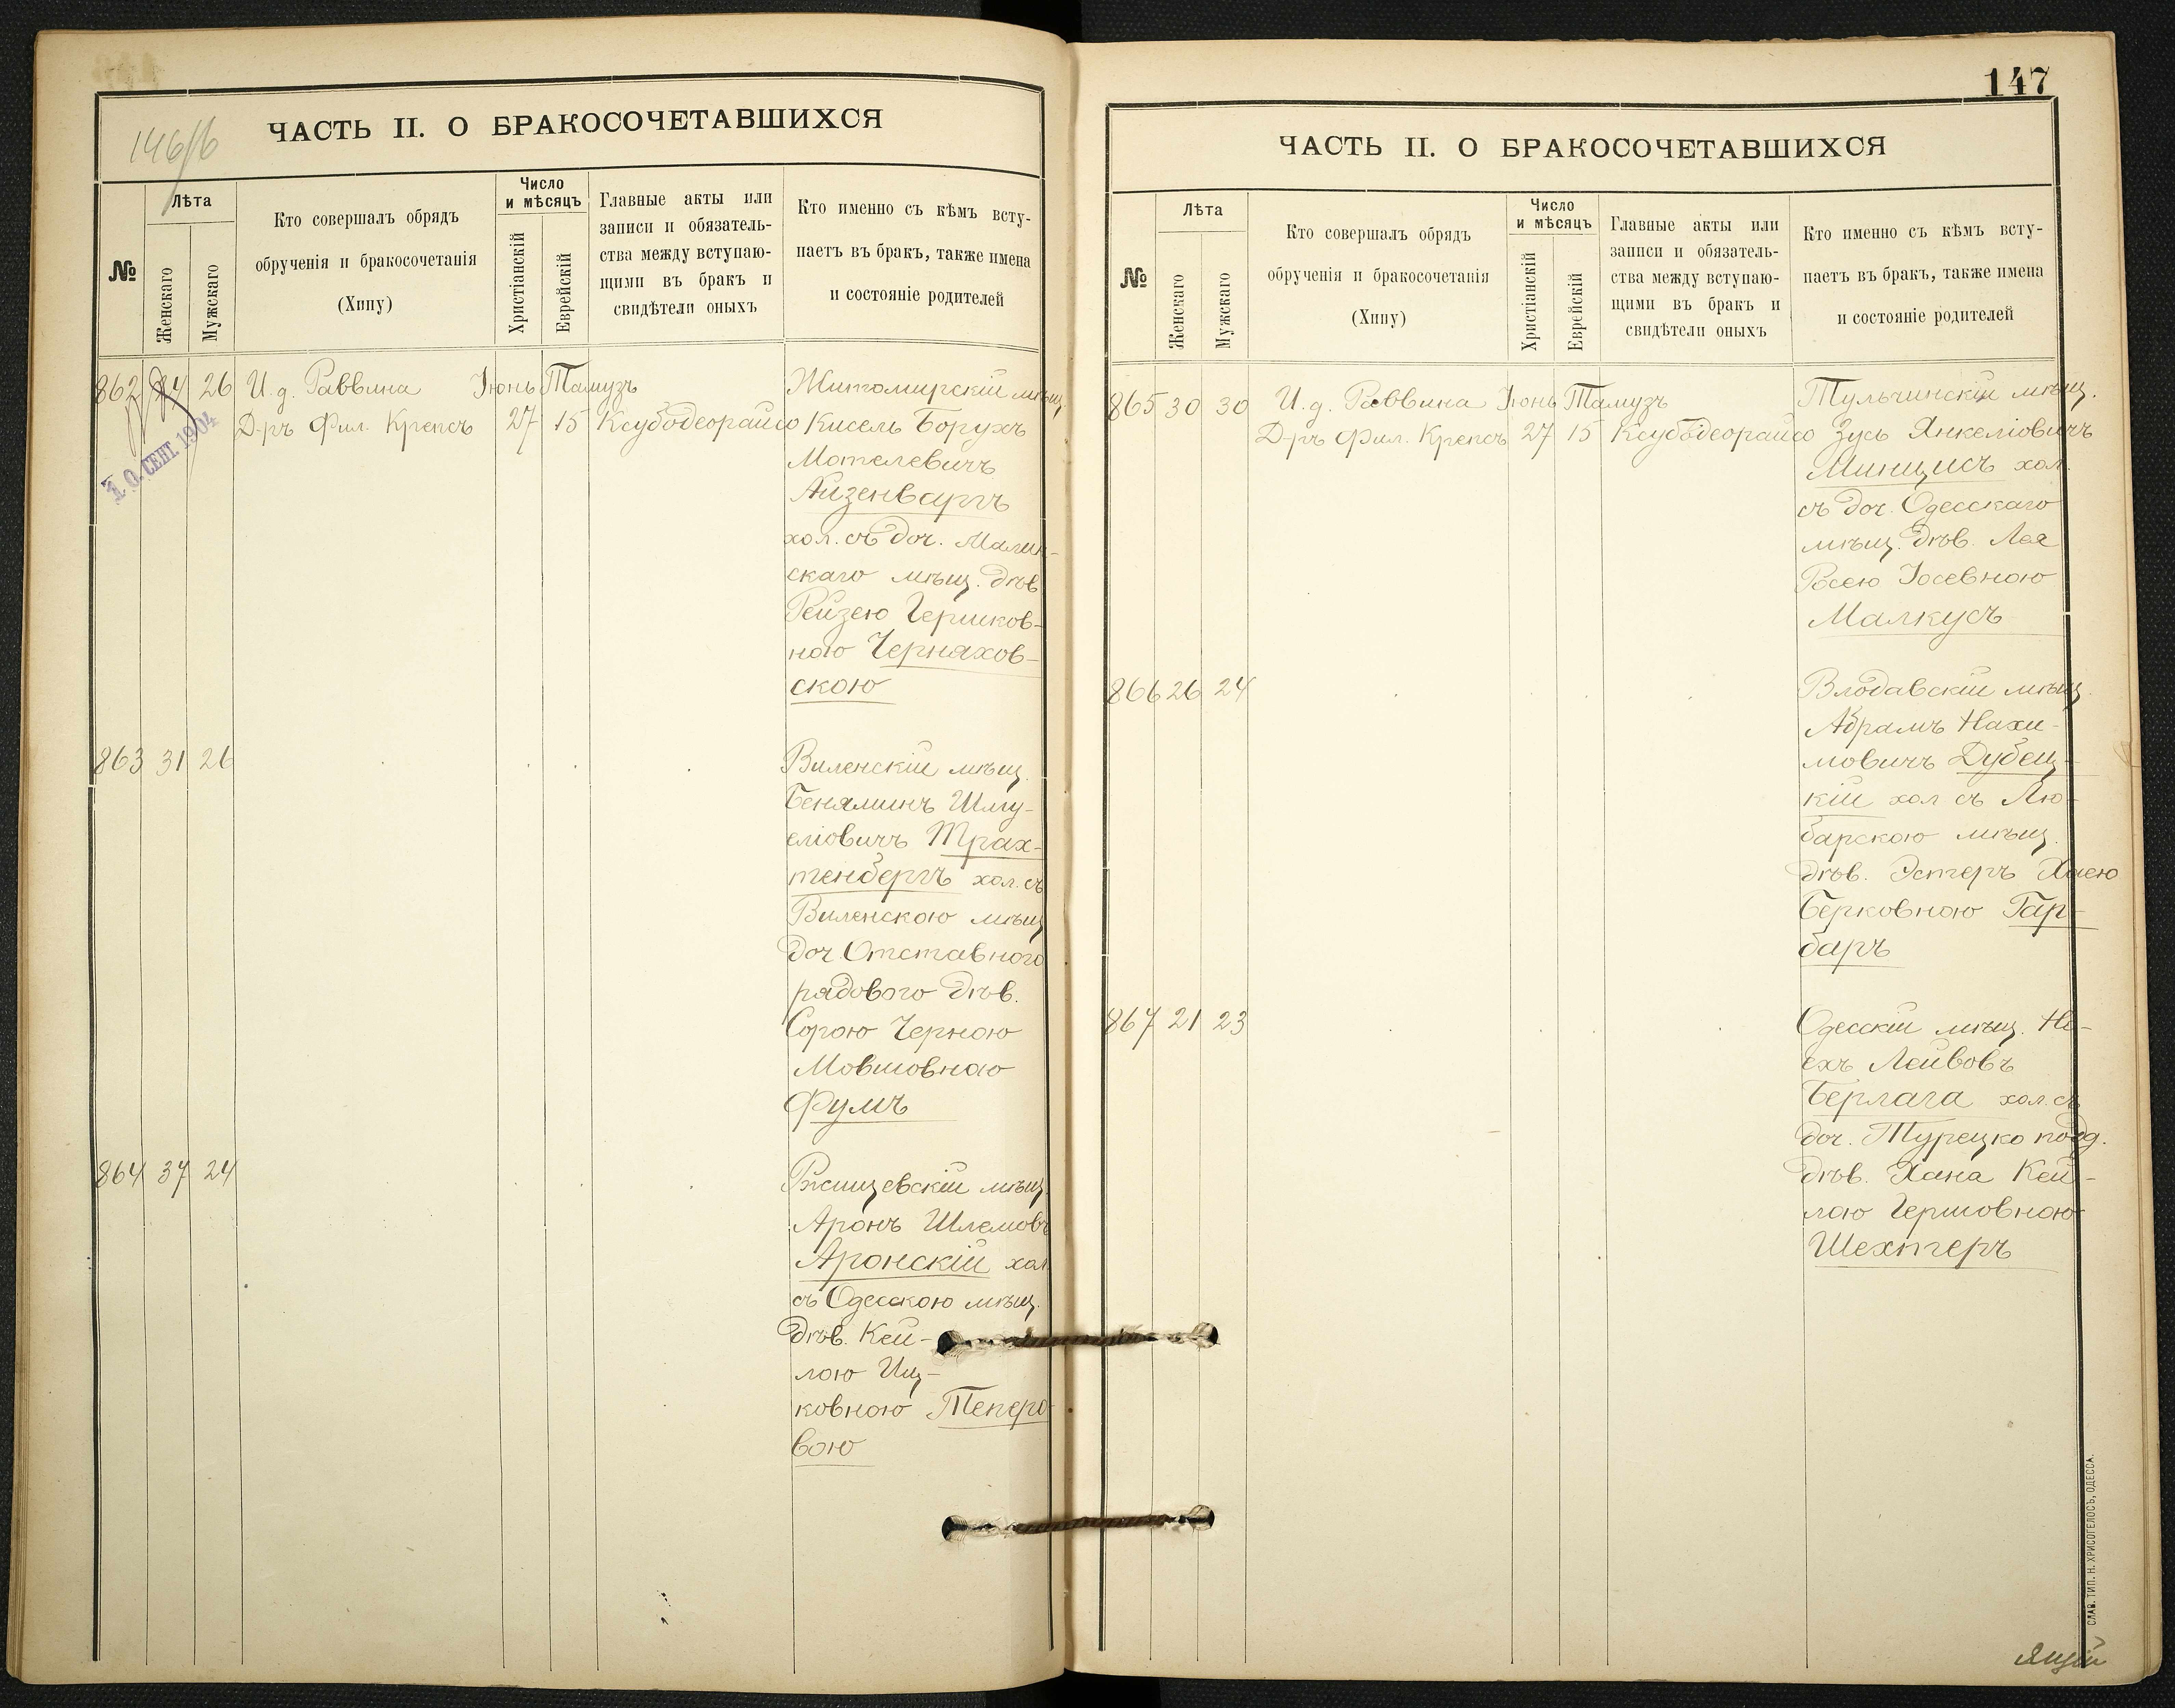 146/б
ЧАСТЬ II. О БРАКОСОЧЕТАВШИХСЯ
№
Лѣта
Женскаго
Мужскаго
Кто совершалъ обрядъ
обрученія и бракосочетанія
(Хипу)
Число
и мѣсяцъ
Христіанскій
Еврейскій
Главные акты или
записи и обязатель-
ства между вступаю-
щими въ бракъ и
свидѣтели оныхъ
Кто именно съ кѣмъ всту-
паетъ въ бракъ, также имена
и состояніе родителей
862 24 26 И.д. Раввина Іюнь Тамузъ
Д-ръ Фил. Крепсъ 27 15 Ксубодеорайсо
10. СЕНТ. 1904
Житомирскій мѣщ.
Кисель Борухъ
Мотелевичъ
Айзенваргъ
хол. съ доч. Малин-
скаго мѣщ. дѣв
Рейзею Гершков-
ною Черняхов-
скою
863 31 26
Виленскій мѣщ.
Бенялинъ Шму-
еліовичъ Трах-
тенбергъ хол. съ
Виленскою мѣщ
доч. Отставного
рядового дѣв.
Сорою Черною
Мовшовною
Фумъ
864 37 24
Ржищевскій мѣщ.
Аронъ Шлемовъ
Аронскій хол
съ Одесскою мѣщ.
дѣв. Кей-
лою Иц-
ковною Теперо-
вою
147
ЧАСТЬ II. О БРАКОСОЧЕТАВШИХСЯ
№
Лѣта
Женскаго
Мужскаго
Кто совершалъ обрядъ
обрученія и бракосочетанія
(Хипу)
Число
и мѣсяцъ
Христіанскій
Еврейскій
Главные акты или
записи и обязатель-
ства между вступаю-
щими въ бракъ и
свидѣтели оныхъ
Кто именно съ кѣмъ всту-
паетъ въ бракъ, также имена
и состояніе родителей
865 30 30 И.д. Раввина Іюнь Тамузъ
Д-ръ Фил. Крепсъ 27 15 Ксубодеорайсо
Тульчинскій мѣщ.
Зусь Янкеліовичъ
Минцисъ хол.
съ доч. Одесскаго
мѣщ. дѣв. Лея
Росею Іосевною
Малкусъ
866 26 24
Влодавскій мѣщ.
Абрамъ Нахи-
мовичъ Дубец-
кій хол съ Лю-
барскою мѣщ.
дѣв. Эстеръ Хаею
Берковною Гар-
баръ
867 21 23
Одесскій мѣщ. Но-
ехъ Лейвовъ
Берлага хол. съ
доч. Турецко подд.
дѣв. Хана Кей-
лою Гершовною
Шехтеръ
СЛАВ. ТИП. Н. ХРИСОГЕЛОСЪ, ОДЕССА.